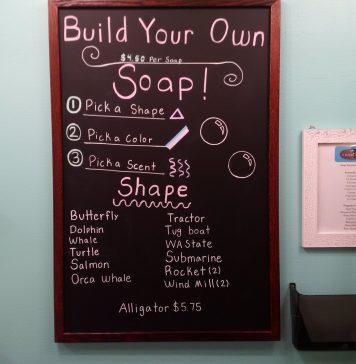 Build Your Own
$4.50 Per Soap
Soap!
1 Pick a Shape
2 Pick a Color
3 Pick a Scent
Shape
Butterfly
Dolphin
Whale
Turtle
Salmon
Orca whale
Tractor
Tug boat
WA State
Submarine
Rocket (2)
Wind Mill (2)
Alligator $5.75